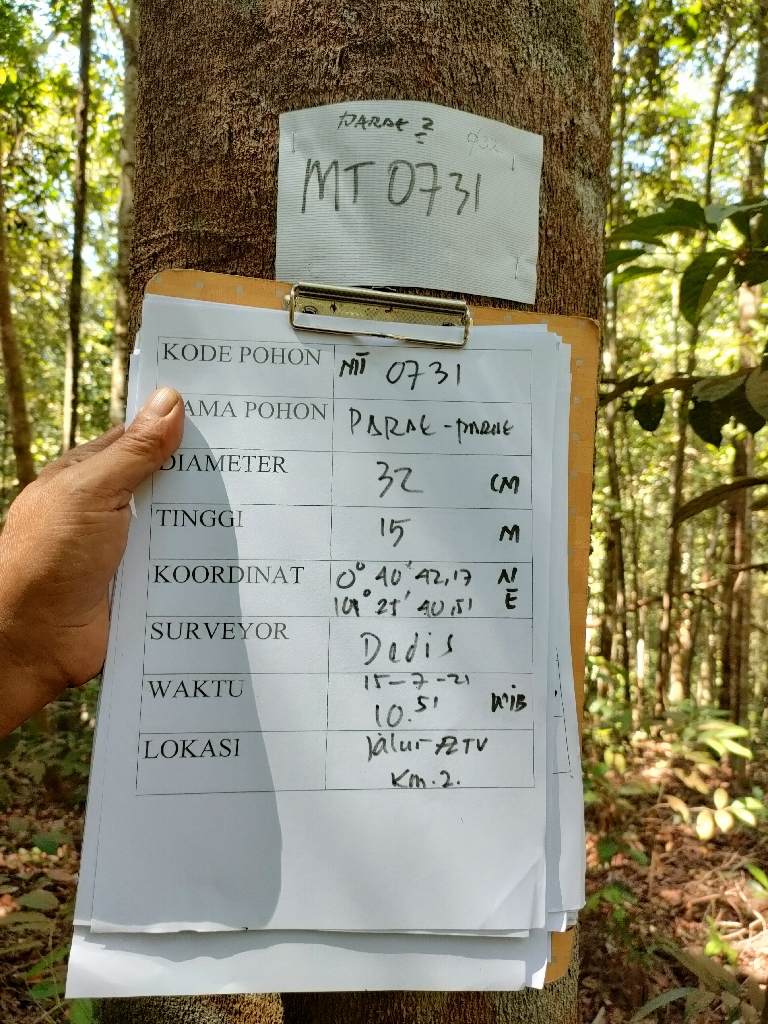 PARAE 2
MT 0731
KODE POHON MT 0731
AMA POHON PARAE - PARAE
DIAMETER 32 CM
TINGGI 15 M
KOORDINAT 0° 40' 42,17 N
101° 25' 40,51 E
SURVEYOR Dedis
WAKTU 15-7-21
10.51 WIB
LOKASI Jalur ATV
Km.2.